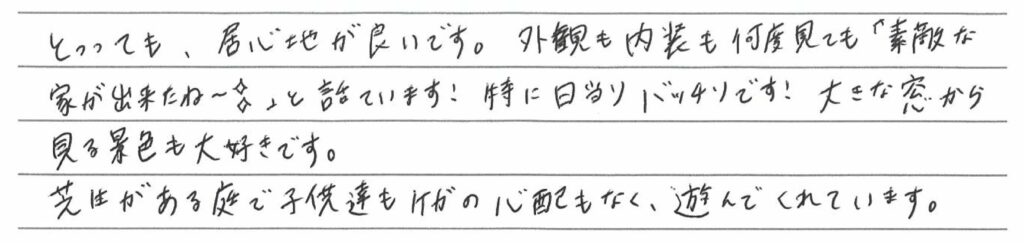 とっっても、居心地が良いです。外観も内装も何度見ても「素敵な
家が出来たね〜✧」と話ています！特に日当りバッチリです！大きな窓から
見る景色も大好きです。
芝生がある庭で子供達もケガの心配もなく、遊んでくれています。